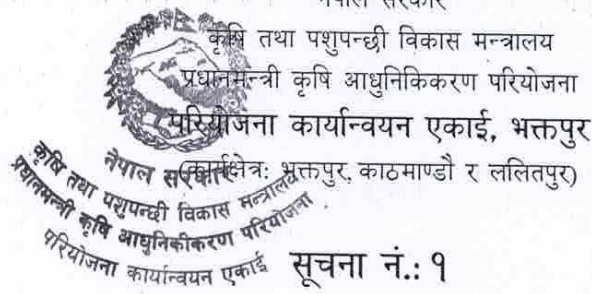 नेपाल सरकार
कृषि तथा पशुपन्छी विकास मन्त्रालय
प्रधानमन्त्री कृषि आधुनिकिकरण परियोजना
परियोजना कार्यान्वयन एकाई, भक्तपुर
(कार्यक्षेत्र: भक्तपुर, काठमाण्डौ र ललितपुर)
नेपाल सरकार
कृषि तथा पशुपन्छी विकास मन्त्रालय
प्रधानमन्त्री कृषि आधुनिकीकरण परियोजना
परियोजना कार्यान्वयन एकाई
सूचना नं.: १